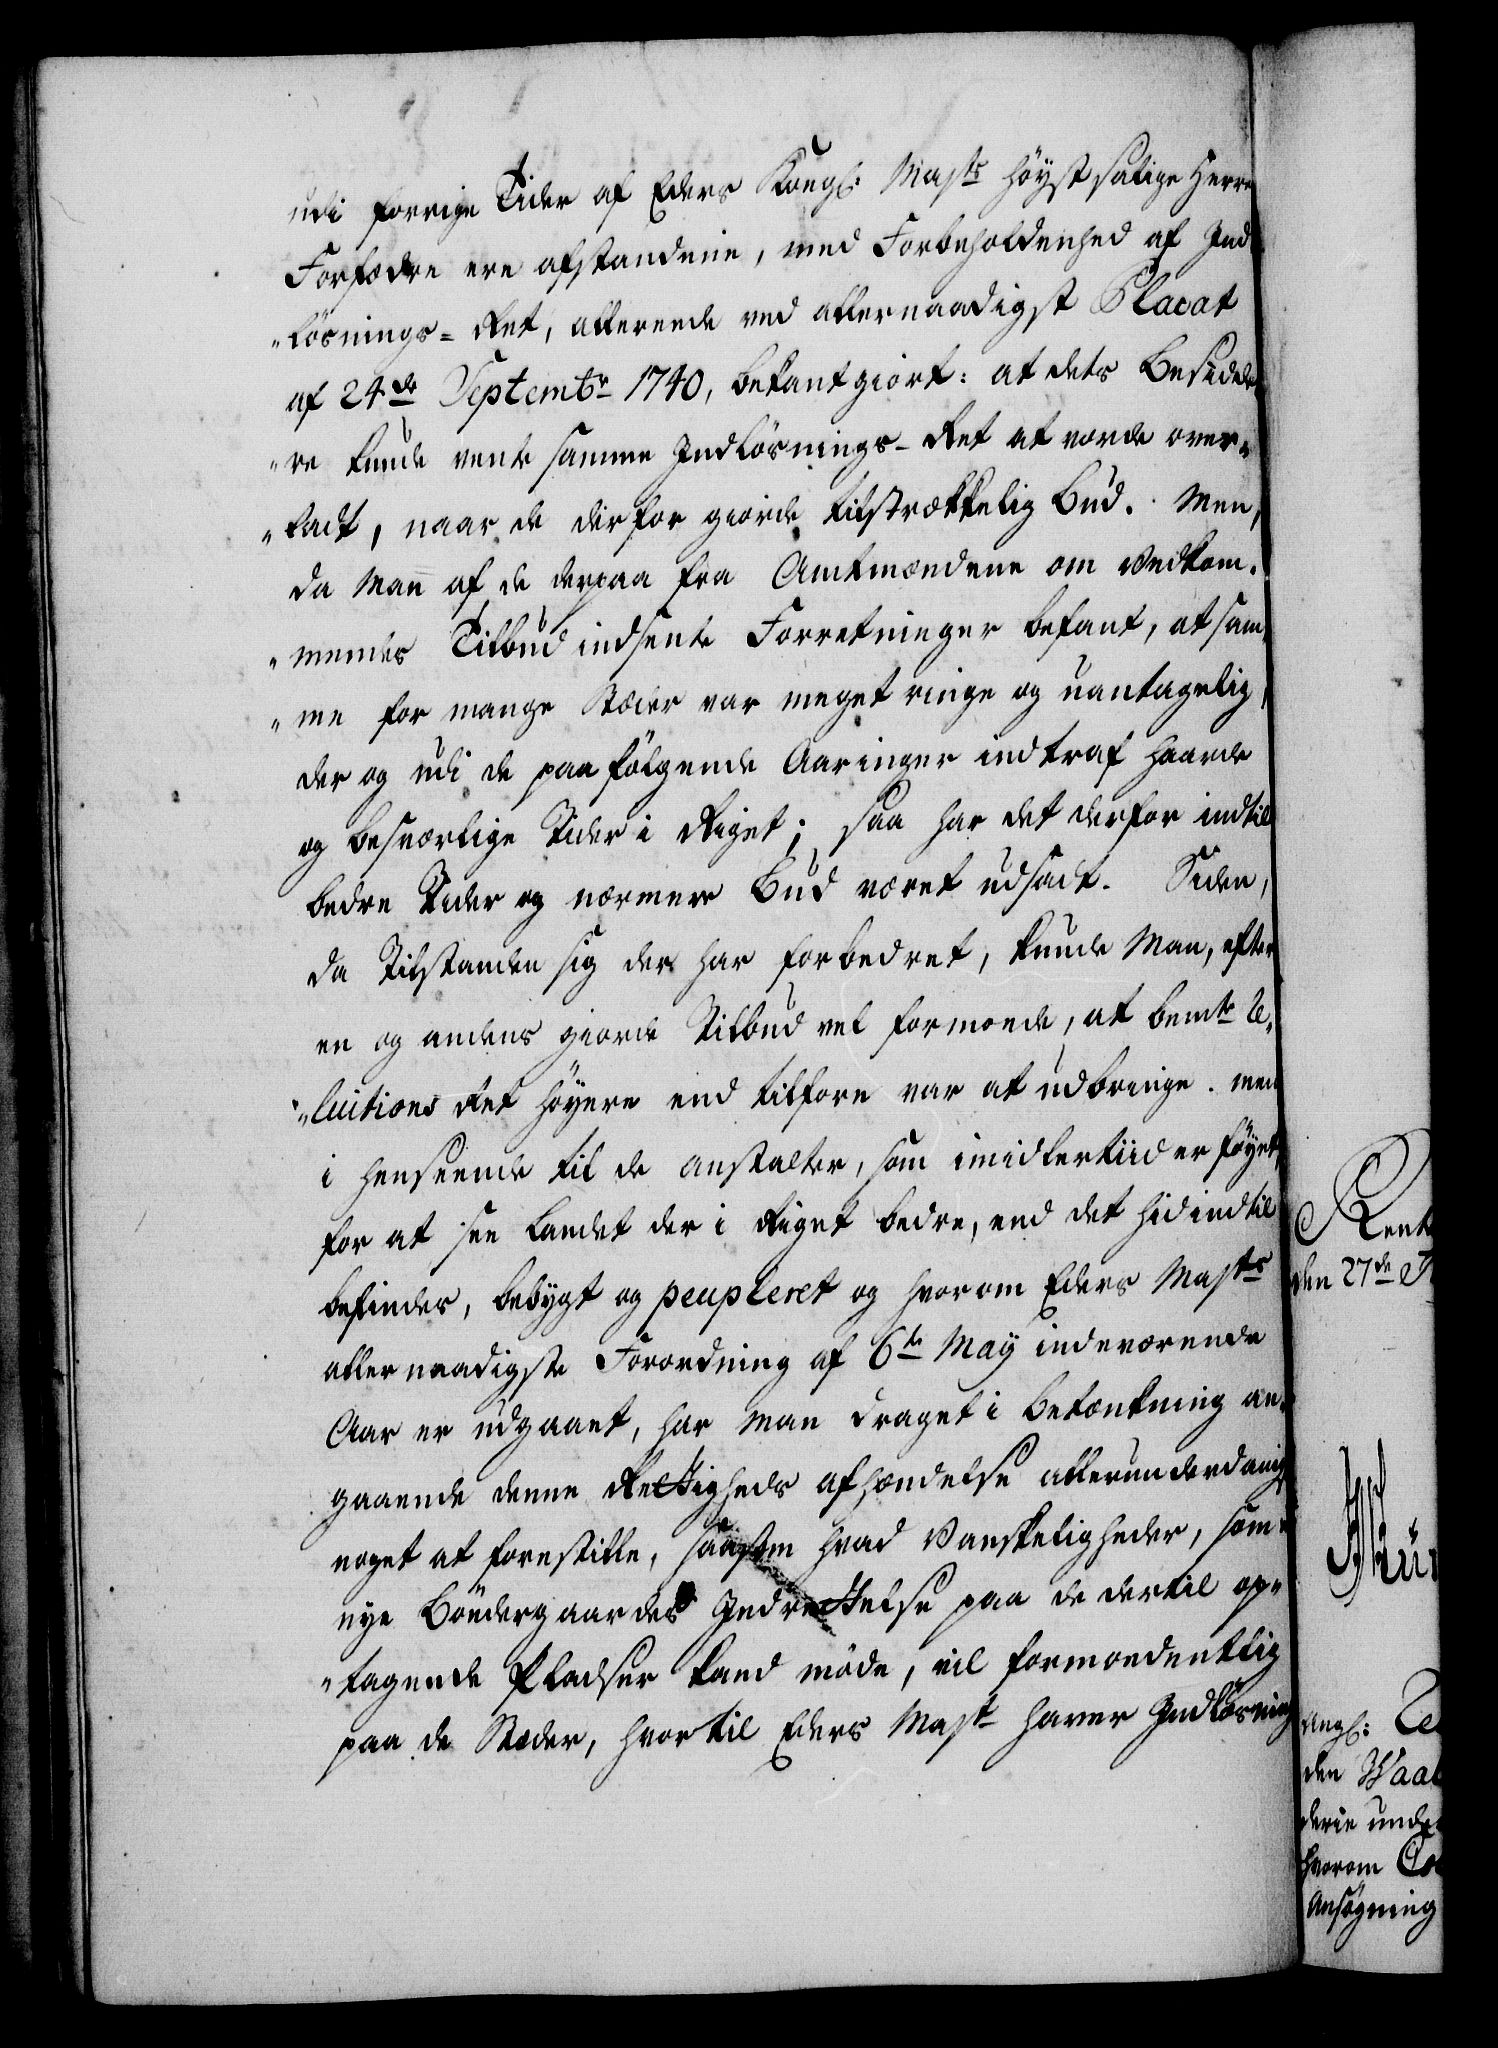 udi forrige Tider af Eders Kongl: Majts høystsalige Herre
Forfædre ere afstandene, med Forbeholdenhed af Ind
"løsnings=Ret, allereede ved allernaadigst Placat
af 24de Septembr 1740, bekantgiort: at dets Besidde
"re kunde vente samme Indløsnings-Ret at vorde over"
"ladt, naar de derfor giorde tilstrækkelig Bud. Men,
da Man af de derpaa fra Amtmændene om Vedkom"
"mendes Tilbud indsente Forretninger befant, at sam
"me for mange Stæder var meget ringe og uantagelig,
der og udi de paafølgende Aaringer indtraf haarde
og besværlige Tider i Riget; saa har det derfor indtil
bedre Tider og nærmere Bud været udsadt. Siden,
da Tilstanden sig der har forbedret, kunde Man, efter
en og andens giorde Tilbud vel formode, at bemte Re"
"luitions Ret høyere end tilforn var at udbringe. men
i henseende til de anstalter, som imidlertiid er føyet,
for at see Landet der i Riget bedre, end det hidindtil
befindes, bebygt og peupleret og hvorom Eders Majts
allernaadigste Forordning af 6te May indeværende
Aar er udgaaet, har Man draget i betænkning an"
gaaende denne Rettigheds afhændelse allerunderdanigst
noget at forestille, saasom hvad Vanskeligheder, som
nye Bøndergaardes Indrettelse paa de dertil op"
"tagende Pladser kand møde, vil formodentlig
paa de Stæder, hvortil Eders Majt haver Indløsnings
den 27de
den
hvorom
Ansøgning